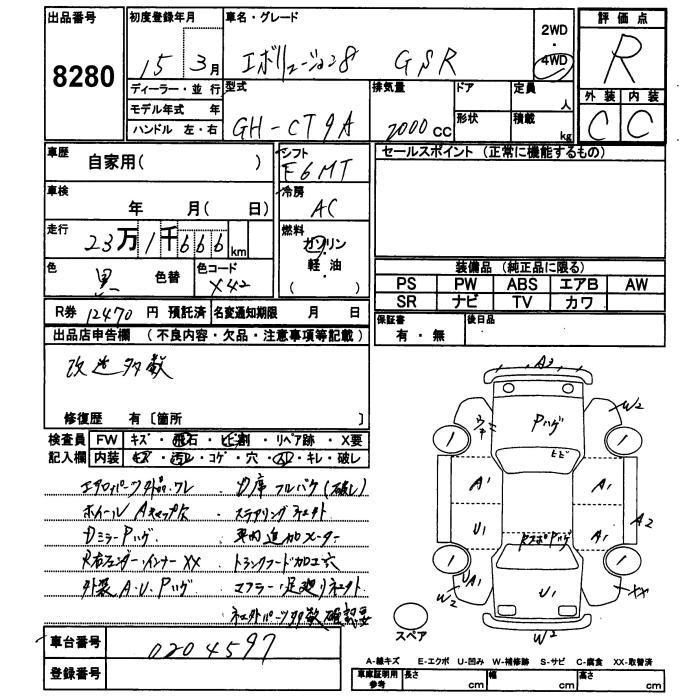 出品番号
8280
初度登録年月
15 3月
車名・グレード
エボリューション8 GSR
2WD
・
4WD
評価点
R
外装 内装
C C
ディーラー・並行
モデル年式 年
ハンドル 左・右
型式
GH-CT9A
排気量
2000cc
ドア
形状
定員 人
積載 kg
車歴
自家用( )
シフト
F6MT
セールスポイント (正常に機能するもの)
車検
年 月( 日)
冷房
AC
走行
23万1千666km
燃料
ガソリン
軽・油
( )
色
黒 色替
色コード
X42
装備品 (純正品に限る)
PS PW ABS エアB AW
SR ナビ TV カワ
R券 12470 円 預託済 名変通知期限 月 日
保証書
有・無
後日品
出品店申告欄 (不良内容・欠品・注意事項等記載)
改造多数
修復歴 有〔箇所 〕
検査員 FW キズ・飛石・ヒビ割・リペア跡・X要
記入欄 内装 キズ・汚レ・コゲ・穴・スレ・キレ・破レ
エアロパーツ外品・ワレ・運転席フルバケ(破レ)
ホイールAキャップ欠・ステアリング社外
DミラーPハゲ・車内追加メーター
R右フェンダーインナーXX・トランクフード加工穴
外装A.U.Pハゲ・マフラー・足廻り社外
社外パーツ多数確認要
A3
W2
Pハゲ
ヒビ
A1 A1
U1 A2
A1
PスポPハゲ
U1
A1
UA1
W2
XX
W2
スペア
車台番号
0204597
登録番号
A-線キズ E-エクボ U-凹み W-補修跡 S-サビ C-腐食 XX-取替済
車庫証明用
参考
長さ cm 幅 cm 高さ cm